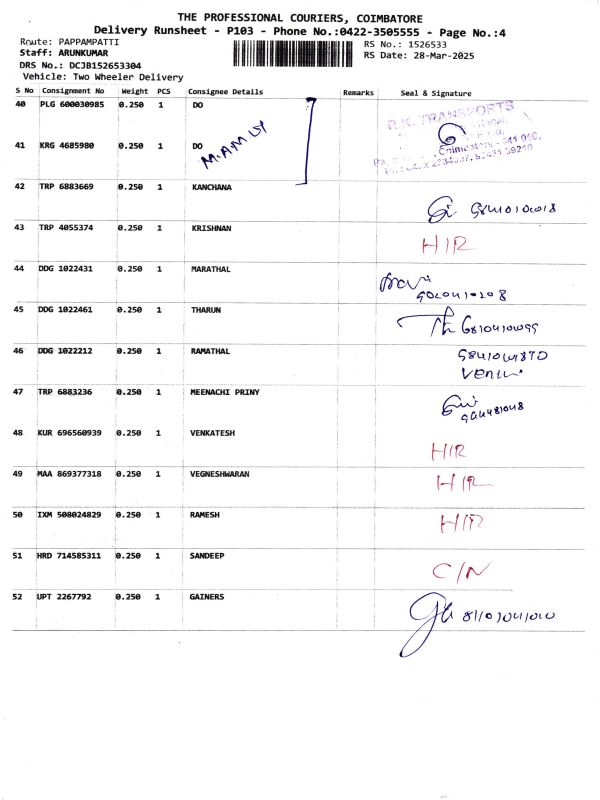 THE PROFESSIONAL COURIERS, COIMBATORE
Delivery Runsheet - P103 - Phone No.:0422-3505555 - Page No.:4
Route: PAPPAMPATTI RS No.: 1526533
Staff: ARUNKUMAR RS Date: 28-Mar-2025
DRS No.: DCJB152653304
Vehicle: Two Wheeler Delivery
S No Consignment No Weight PCS Consignee Details Remarks Seal & Signature
40 PLG 600030985 0.250 1 DO
R.K. TRANSPORTS
41 KRG 4685980 0.250 1 DO
Coimbatore - 641 016.
42 TRP 6883669 0.250 1 KANCHANA
43 TRP 4055374 0.250 1 KRISHNAN H/R
44 DDG 1022431 0.250 1 MARATHAL
45 DDG 1022461 0.250 1 THARUN
46 DDG 1022212 0.250 1 RAMATHAL
47 TRP 6883236 0.250 1 MEENACHI PRINY
48 KUR 696560939 0.250 1 VENKATESH H/R
49 MAA 869377318 0.250 1 VEGNESHWARAN H/R
50 IXM 508024829 0.250 1 RAMESH H/R
51 HRD 714585311 0.250 1 SANDEEP C/N
52 UPT 2267792 0.250 1 GAINERS